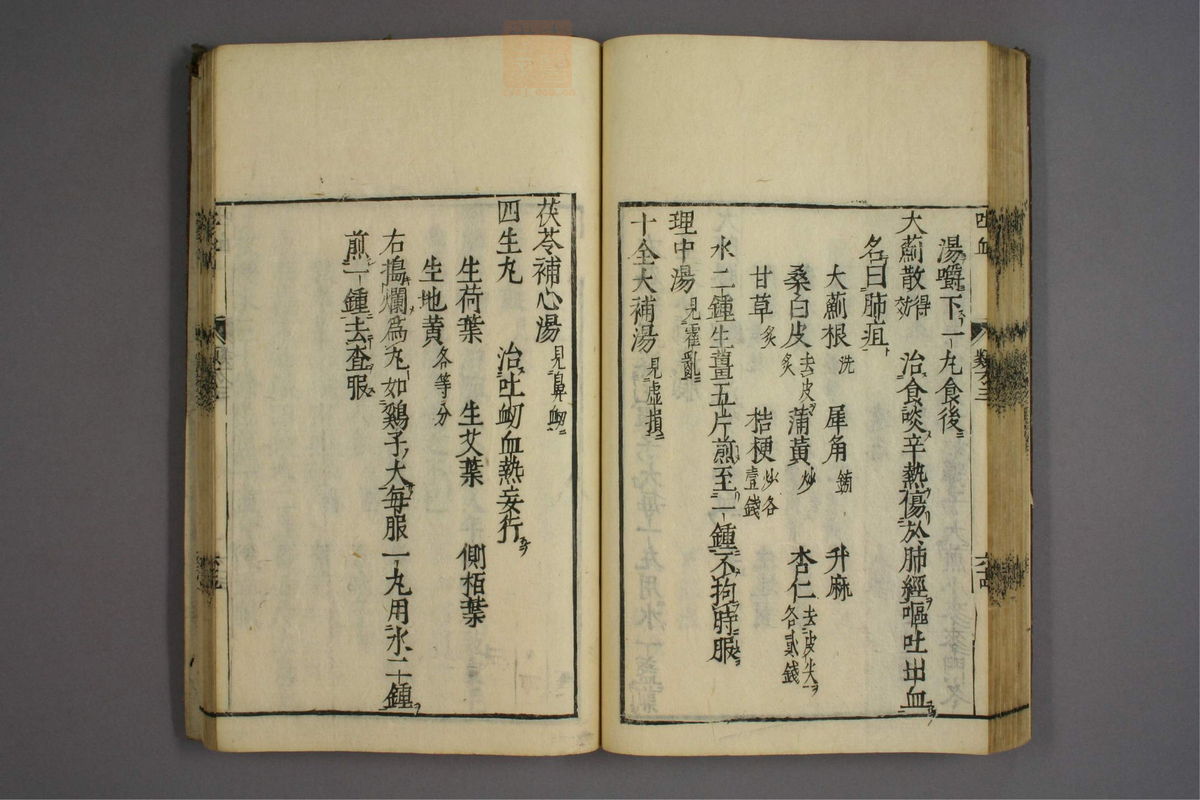 湯嚼下一丸食後
大薊散 得効 治食啖辛熱傷於肺經嘔吐出血
名曰肺疽
大薊根 洗 犀角 鎊 升麻
桑白皮 去皮炙 蒲黃 炒 杏仁 去皮尖各貳錢
甘草 炙 桔梗 炒各壹錢
水二鍾生薑五片煎至一鍾不拘時服
理中湯 見霍亂
十全大補湯 見虛損
茯苓補心湯 見鼻衂
四生丸 治吐衂血熱妄行
生荷葉 生艾葉 側栢葉
生地黃 各等分
右搗爛爲丸如鷄子大每服一丸用水二鍾
煎一鍾去査服